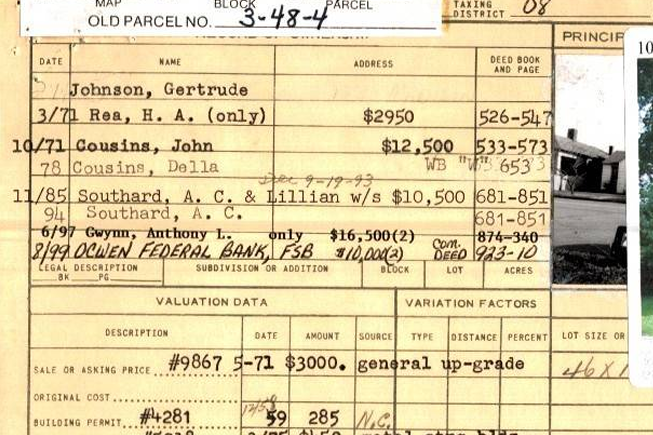 MAP BLOCK PARCEL
OLD PARCEL NO. 3-48-4
TAXING DISTRICT 08
RECORD OF OWNERSHIP
PRINCIP
10
DATE NAME ADDRESS DEED BOOK AND PAGE
Johnson, Gertrude
3/71 Rea, H. A. (only) $2950 526-547
10/71 Cousins, John $12,500 533-573
78 Cousins, Della WB "W" 653
Dec 9-19-93
11/85 Southard, A. C. & Lillian w/s $10,500 681-851
94 Southard, A. C. 681-851
6/97 Gwynn, Anthony L. only $16,500(2) 874-340
8/99 OCWEN FEDERAL BANK, FSB $10,000(2) Com. DEED 923-10
LEGAL DESCRIPTION SUBDIVISION OR ADDITION BLOCK LOT ACRES
BK PG
VALUATION DATA VARIATION FACTORS
DESCRIPTION DATE AMOUNT SOURCE TYPE DISTANCE PERCENT LOT SIZE OR
SALE OR ASKING PRICE #9867 5-71 $3000. general up-grade 46 X 1
ORIGINAL COST
BUILDING PERMIT #4281 59 285 N.C.